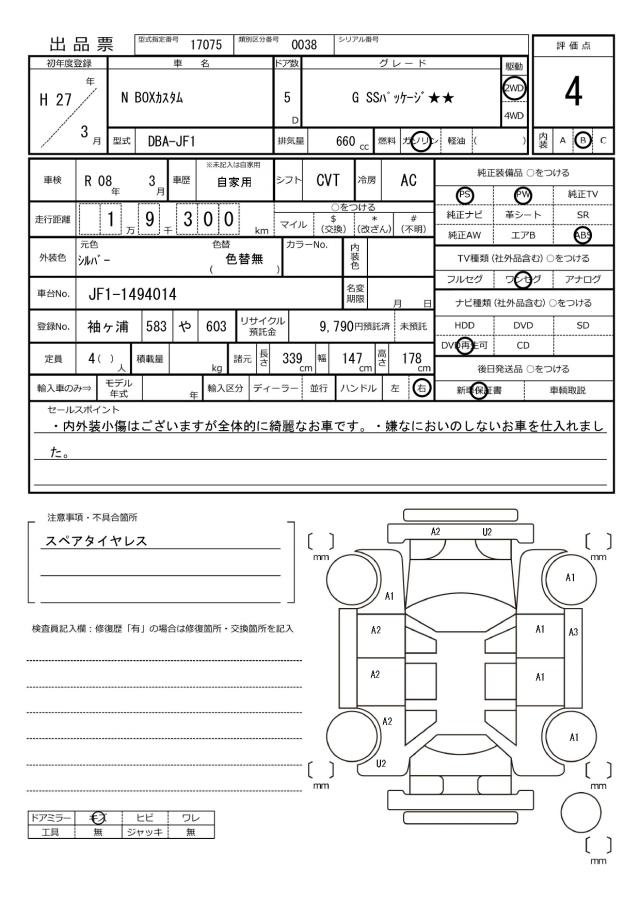 出品票
型式指定番号 17075 類別区分番号 0038 シリアル番号
評価点
初年度登録 車名 ドア数 グレード 駆動
H 27 年 3 月 N BOXカスタム 5 D G SSパッケージ★★ 2WD 4WD
4
型式 DBA-JF1 排気量 660 cc 燃料 ガソリン 軽油 ( )
内装 A B C
車検 R 08 年 3 月 車歴 ※未記入は自家用 自家用 シフト CVT 冷房 AC
純正装備品 ○をつける
PS PW 純正TV
純正ナビ 革シート SR
純正AW エアB ABS
走行距離 1 万 9 千 300 km
○をつける
マイル $ (交換) * (改ざん) # (不明)
外装色 元色 シルバー 色替 ( 色替無 ) カラーNo. 内装色
TV種類 (社外品含む) ○をつける
フルセグ ワンセグ アナログ
車台No. JF1-1494014 名変期限 月 日
ナビ種類 (社外品含む) ○をつける
HDD DVD SD
DVD再生可 CD
登録No. 袖ヶ浦 583 や 603 リサイクル預託金 9,790円預託済 未預託
定員 4 ( ) 人 積載量 kg 諸元 長さ 339 cm 幅 147 cm 高さ 178 cm
後日発送品 ○をつける
新車保証書 車輌取説
輸入車のみ⇒ モデル年式 年 輸入区分 ディーラー 並行 ハンドル 左 右
セールスポイント
・内外装小傷はございますが全体的に綺麗なお車です。・嫌なにおいのしないお車を仕入れまし
た。
注意事項・不具合箇所
スペアタイヤレス
検査員記入欄：修復歴「有」の場合は修復箇所・交換箇所を記入
A2 U2
mm mm
A1
A1
A2 A1 A3
A2 A1
A2
A1
U2
mm mm
ドアミラー キズ ヒビ ワレ
工具 無 ジャッキ 無
mm